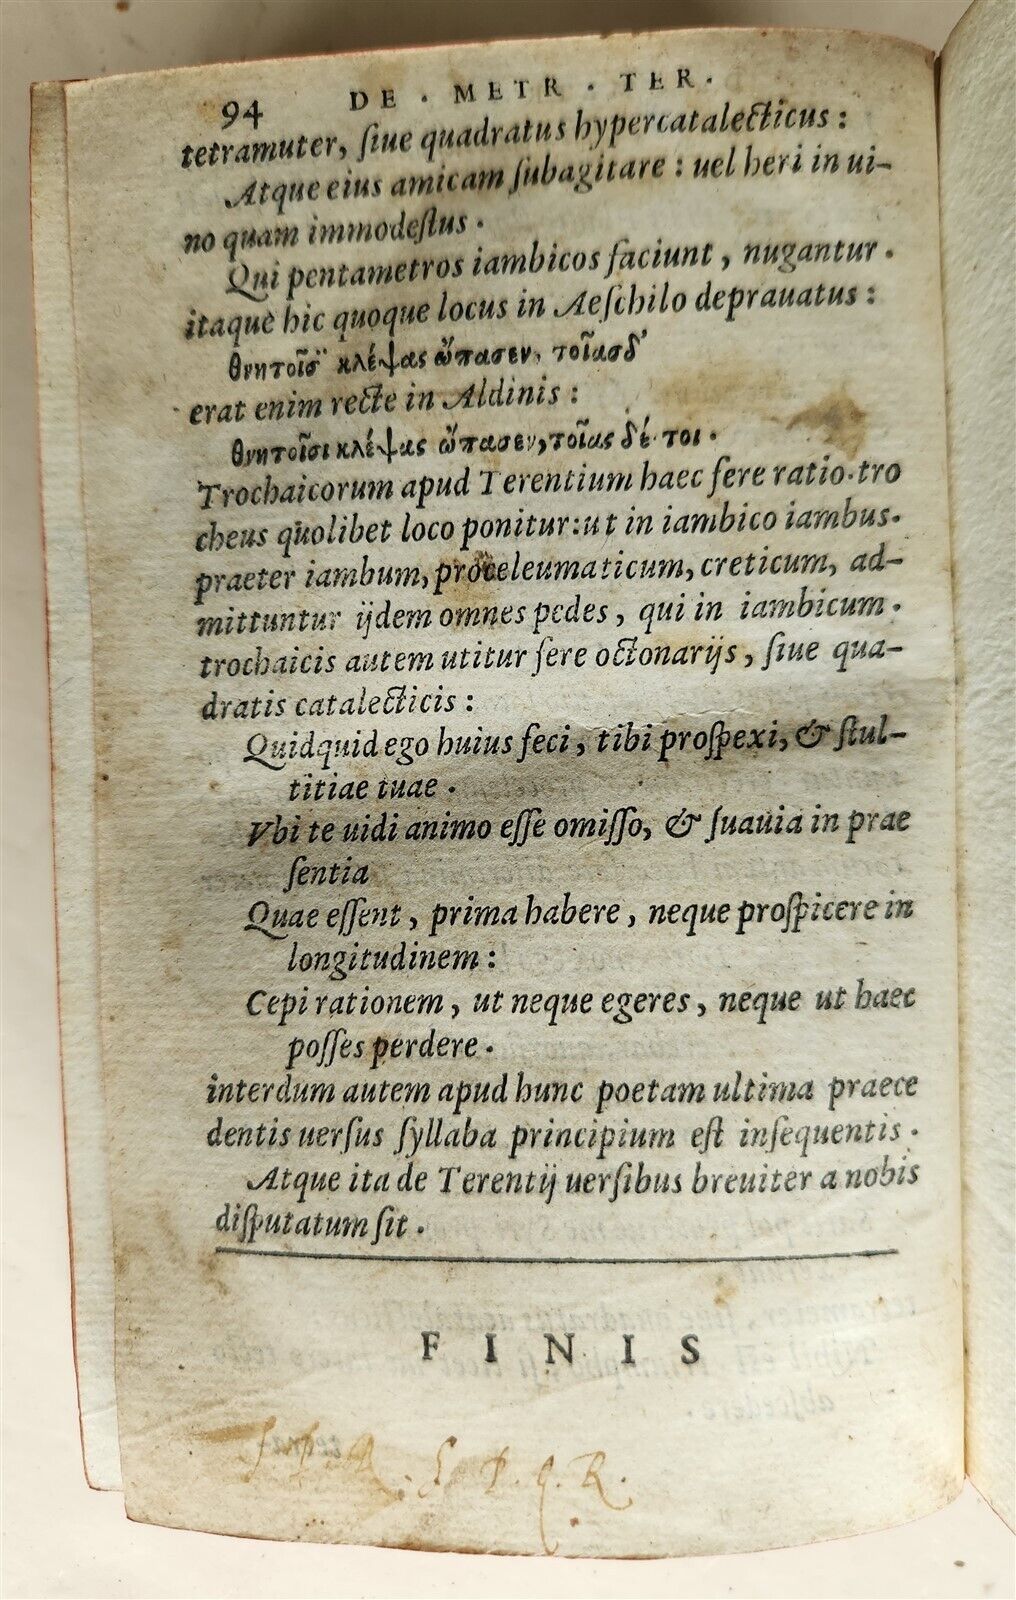 94 DE · METR · TER ·
tetramuter, ſiue quadratus hypercatalecticus :
Atque eius amicam ſubagitare : uel heri in ui-
no quam immodeſtus .
Qui pentametros iambicos faciunt , nugantur .
itaque hic quoque locus in Aeſchilo deprauatus :
θνητοῖς κλέψας ὤπασεν, τοῖασδ’
erat enim recte in Aldinis :
θνητοῖσι κλέψας ὤπασεν, τοῖας δέ τοι .
Trochaicorum apud Terentium haec fere ratio . tro
cheus quolibet loco ponitur : ut in iambico iambus .
praeter iambum, proceleumaticum, creticum, ad-
mittuntur ijdem omnes pedes , qui in iambicum .
trochaicis autem utitur fere octonarijs , ſiue qua-
dratis catalecticis :
Quidquid ego huius feci , tibi proſpexi, & ſtul-
titiae tuae .
Vbi te uidi animo eſſe omiſſo, & ſuauia in prae
ſentia
Quae eſſent , prima habere , neque proſpicere in
longitudinem :
Cepi rationem , ut neque egeres , neque ut haec
poſſes perdere .
interdum autem apud hunc poetam ultima praece
dentis uerſus ſyllaba principium eſt inſequentis .
Atque ita de Terentij uerſibus breuiter a nobis
diſputatum ſit .
FINIS
P. Q. R.